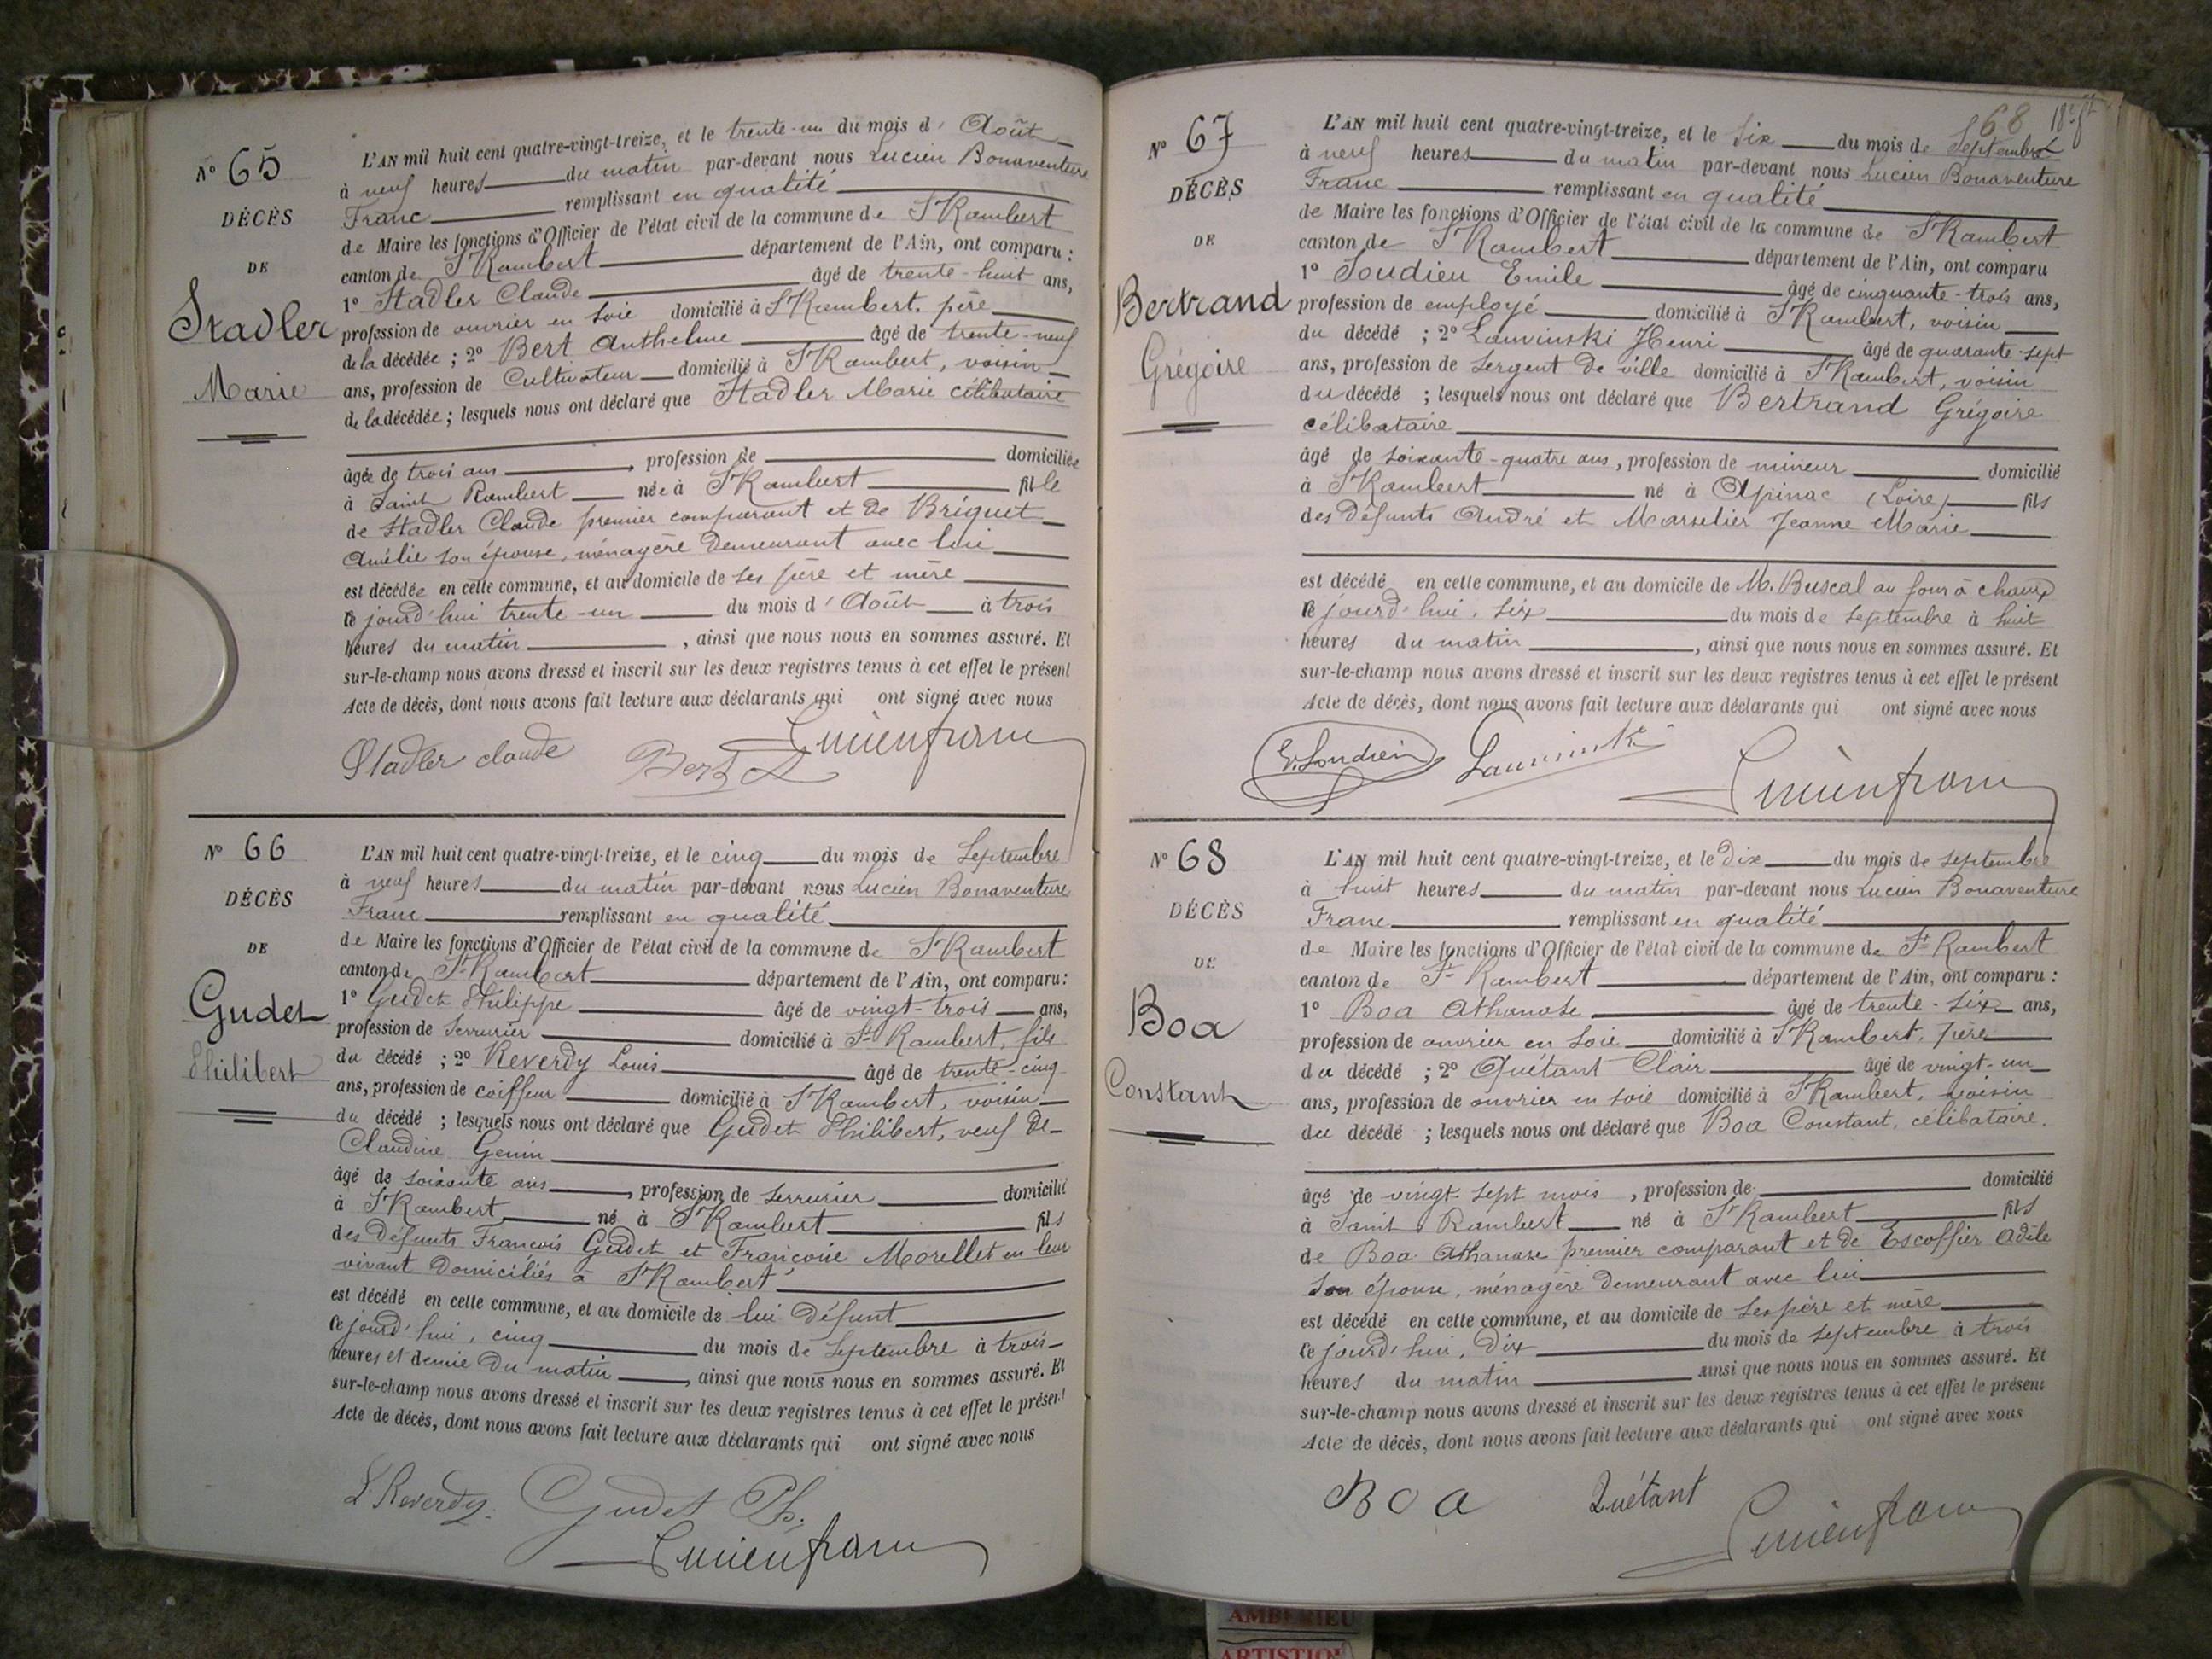 N° 65
DÉCÈS
DE
Stadler
Marie
L'AN mil huit cent quatre-vingt-treize, et le trente-un du mois d' Août
à neuf heures du matin par-devant nous Lucien Bonaventure
Franc remplissant en qualité
de Maire les fonctions d'Officier de l'état civil de la commune de St Rambert
canton de St Rambert département de l'Ain, ont comparu :
1° Stadler Claude âgé de trente-huit ans,
profession de ouvrier en soie domicilié à St Rambert, père
de la décédée ; 2° Bert Anthelme âgé de trente-neuf
ans, profession de Cultivateur domicilié à St Rambert, voisin
de la décédée ; lesquels nous ont déclaré que Stadler Marie célibataire
âgée de trois ans, profession de domiciliée
à Saint Rambert née à St Rambert fille
de Stadler Claude premier comparant et de Briquet
Amélie son épouse, ménagère demeurant avec lui
est décédée en cette commune, et au domicile de ses père et mère
ce jourd'hui trente-un du mois d' Août à trois
heures du matin, ainsi que nous nous en sommes assuré. Et
sur-le-champ nous avons dressé et inscrit sur les deux registres tenus à cet effet le présent
Acte de décès, dont nous avons fait lecture aux déclarants qui ont signé avec nous
Stadler claude Bert Lucien franc
N° 66
DÉCÈS
DE
Gudet
Philibert
L'AN mil huit cent quatre-vingt-treize, et le cinq du mois de Septembre
à neuf heures du matin par-devant nous Lucien Bonaventure
Franc remplissant en qualité
de Maire les fonctions d'Officier de l'état civil de la commune de St Rambert
canton de St Rambert département de l'Ain, ont comparu :
1° Gudet Philippe âgé de vingt-trois ans,
profession de Serrurier domicilié à St Rambert, fils
du décédé ; 2° Reverdy Louis âgé de trente-cinq
ans, profession de coiffeur domicilié à St Rambert, voisin
du décédé ; lesquels nous ont déclaré que Gudet Philibert, veuf de
Claudine Genin
âgé de soixante ans, profession de serrurier domicilié
à St Rambert né à St Rambert fils
des défunts François Gudet et Françoise Morellet en leur
vivant domiciliés à St Rambert
est décédé en cette commune, et au domicile de lui défunt
ce jourd'hui, cinq du mois de Septembre à trois
heures et demie du matin, ainsi que nous nous en sommes assuré. Et
sur-le-champ nous avons dressé et inscrit sur les deux registres tenus à cet effet le présent
Acte de décès, dont nous avons fait lecture aux déclarants qui ont signé avec nous
L Reverdy. Gudet Ph.
Lucien franc
68
N° 67
DÉCÈS
DE
Bertrand
Grégoire
L'AN mil huit cent quatre-vingt-treize, et le six du mois de Septembre
à neuf heures du matin par-devant nous Lucien Bonaventure
Franc remplissant en qualité
de Maire les fonctions d'Officier de l'état civil de la commune de St Rambert
canton de St Rambert département de l'Ain, ont comparu
1° Soudieu Emile âgé de cinquante-trois ans,
profession de employé domicilié à St Rambert, voisin
du décédé ; 2° Henri âgé de quarante-sept
ans, profession de Sergent de ville domicilié à St Rambert, voisin
du décédé ; lesquels nous ont déclaré que Bertrand Grégoire
célibataire
âgé de soixante-quatre ans, profession de mineur domicilié
à St Rambert né à Apinac (Loire) fils
des défunts André et Marselier Jeanne Marie
est décédé en cette commune, et au domicile de M. Buscal au four à chaux
ce jourd'hui, six du mois de Septembre à huit
heures du matin, ainsi que nous nous en sommes assuré. Et
sur-le-champ nous avons dressé et inscrit sur les deux registres tenus à cet effet le présent
Acte de décès, dont nous avons fait lecture aux déclarants qui ont signé avec nous
Lucien franc
N° 68
DÉCÈS
DE
Boa
Constant
L'AN mil huit cent quatre-vingt-treize, et le Dix du mois de Septembre
à huit heures du matin par-devant nous Lucien Bonaventure
Franc remplissant en qualité
de Maire les fonctions d'Officier de l'état civil de la commune de St Rambert
canton de St Rambert département de l'Ain, ont comparu :
1° Boa Athanase âgé de trente-six ans,
profession de ouvrier en soie domicilié à St Rambert, père
du décédé ; 2° Quétant Clair âgé de vingt-un
ans, profession de ouvrier en soie domicilié à St Rambert, voisin
du décédé ; lesquels nous ont déclaré que Boa Constant, célibataire.
âgé de vingt-sept mois, profession de domicilié
à Saint Rambert né à St Rambert fils
de Boa Athanase premier comparant et de Escoffier Adèle
son épouse, ménagère demeurant avec lui
est décédé en cette commune, et au domicile de ses père et mère
ce jourd'hui, Dix du mois de Septembre à trois
heures du matin ainsi que nous nous en sommes assuré. Et
sur-le-champ nous avons dressé et inscrit sur les deux registres tenus à cet effet le présent
Acte de décès, dont nous avons fait lecture aux déclarants qui ont signé avec nous
Boa Quétant Lucien franc
AMBERIEU